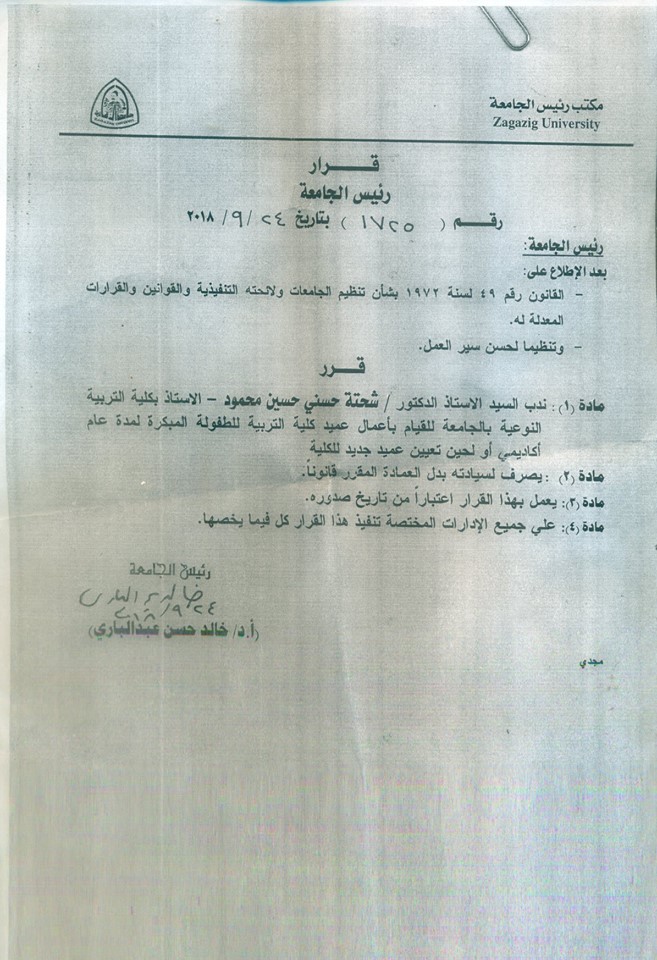 مكتب رئيس الجامعة
Zagazig University
قـــرار
رئيس الجامعة
رقــم ( ١٧٢٥ ) بتاريخ ٢٤ / ٩ / ٢٠١٨
رئيس الجامعة:
بعد الإطلاع على:
- القانون رقم ٤٩ لسنة ١٩٧٢ بشأن تنظيم الجامعات ولائحته التنفيذية والقوانين والقرارات
المعدلة له.
- وتنظيما لحسن سير العمل.
قــرر
مادة (١): ندب السيد الاستاذ الدكتور / شحتة حسني حسين محمود - الاستاذ بكلية التربية
النوعية بالجامعة للقيام بأعمال عميد كلية التربية للطفولة المبكرة لمدة عام
أكاديمي أو لحين تعيين عميد جديد للكلية
مادة (٢): يصرف لسيادته بدل العمادة المقرر قانوناً.
مادة (٣): يعمل بهذا القرار اعتباراً من تاريخ صدوره.
مادة (٤): علي جميع الإدارات المختصة تنفيذ هذا القرار كل فيما يخصها.
رئيس الجامعة
خالد عبد الباري
٢٤/٩/٢٠١٨
(أ.د/ خالد حسن عبدالباري)
مجدي